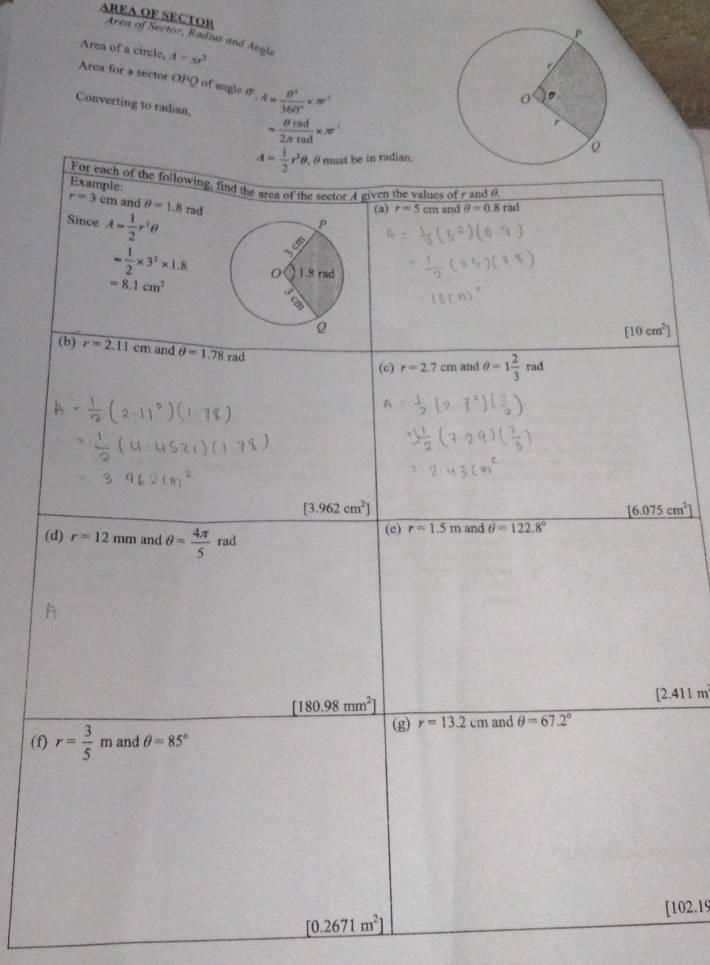 AREA OF SECTOR
Area of Sector, Radius and Angle
Area of a circle, A = πr²
Area for a sector OPQ of angle θ°, A = θ°/360° × πr²
Converting to radian,
= θ rad/2π rad × πr²
A = 1/2 r²θ, θ must be in radian.
P
r
O θ
r
Q
For each of the following, find the area of the sector A given the values of r and θ.
Example:
r = 3 cm and θ = 1.8 rad
Since A = 1/2 r²θ
= 1/2 × 3² × 1.8
= 8.1 cm²
P
3 cm
O 1.8 rad
3 cm
Q
(a) r = 5 cm and θ = 0.8 rad
A = 1/2 (5²)(0.8)
= 1/2 (25)(0.8)
= 10cm²
[10 cm²]
(b) r = 2.11 cm and θ = 1.78 rad
A = 1/2 (2.11²)(1.78)
= 1/2 (4.4521)(1.78)
= 3.962cm²
[3.962 cm²]
(c) r = 2.7 cm and θ = 1 2/3 rad
A = 1/2 (2.7²)(3/2)
= 1/2 (7.29)(2/3)
= 2.43cm²
[6.075 cm²]
(d) r = 12 mm and θ = 4π/5 rad
A
[180.98 mm²]
(e) r = 1.5 m and θ = 122.8°
[2.411 m²
(f) r = 3/5 m and θ = 85°
[0.2671 m²]
(g) r = 13.2 cm and θ = 67.2°
[102.19